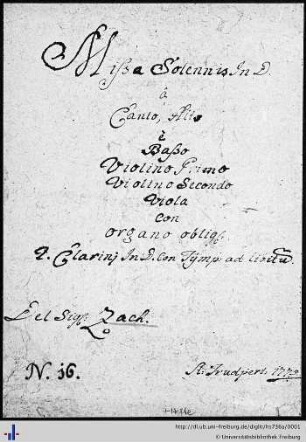 Missa Solennis In D.
à
Canto, Alto
è
Basso
Violino Primo
Violino Secondo
Viola
Con
Organo oblig:
2. Clarinj In D. Con Tymp: ad libitũ
Del Sigl: Zach.
N. 16.
St. Trudpert. 1772
http://dl.ub.uni-freiburg.de/diglit/hs736a/0001
© Universitätsbibliothek Freiburg